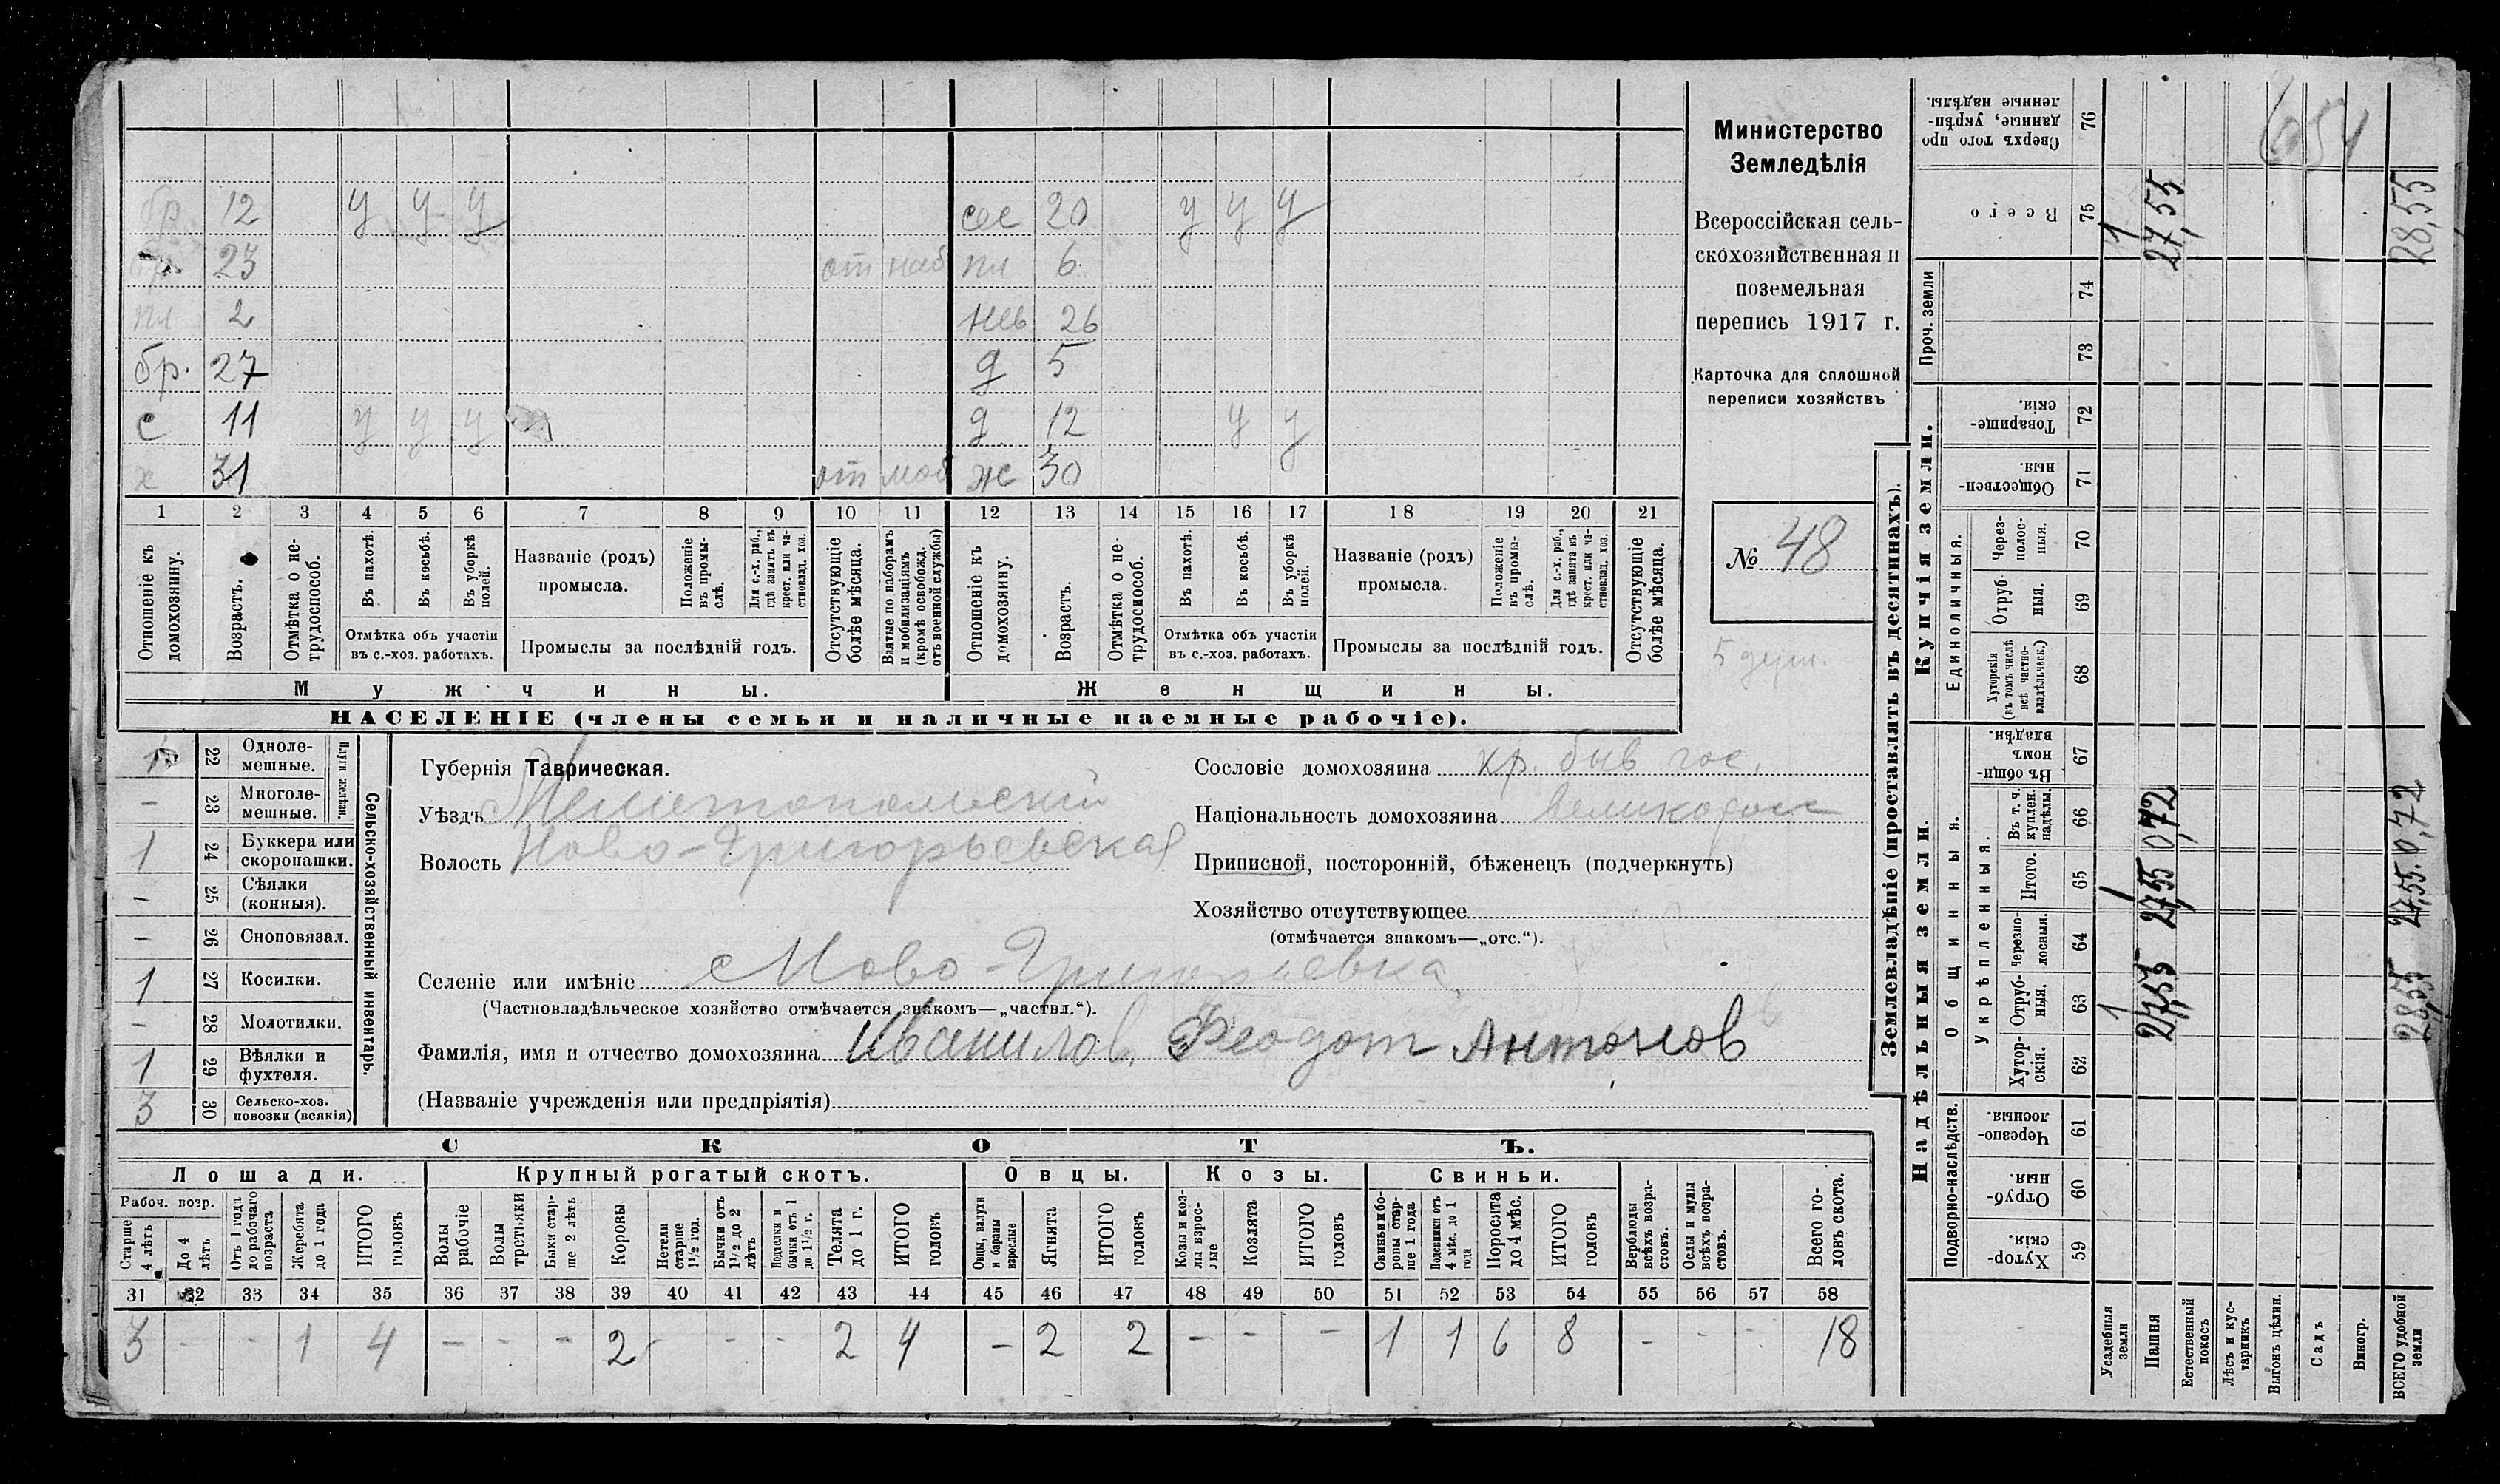 бр. 12 у у у сес 20 у у у
бр. 23 от наб пл 6
пл 2 нев 26
бр. 27 д 5
с 11 у у у д 12 у у
х 31 от моб ж 30
1 2 3 4 5 6 7 8 9 10 11 12 13 14 15 16 17 18 19 20 21
Отношеніе къ домохозяину.
Возрастъ.
Отмѣтка о нетрудоспособ.
Въ пахотѣ.
Въ косьбѣ.
Въ уборкѣ полей.
Отмѣтка объ участіи
въ с.-хоз. работахъ.
Названіе (родъ)
промысла.
Положеніе въ промыслѣ.
Для с.-х. раб., гдѣ занятъ въ крест. или частновлад. хоз.
Промыслы за послѣдній годъ.
Отсутствующіе болѣе мѣсяца.
Взятые по наборамъ и мобилизаціямъ (кромѣ освобожд. отъ военной службы)
Отношеніе къ домохозяину.
Возрастъ.
Отмѣтка о нетрудоспособ.
Въ пахотѣ.
Въ косьбѣ.
Въ уборкѣ полей.
Отмѣтка объ участіи
въ с.-хоз. работахъ.
Названіе (родъ)
промысла.
Положеніе въ промыслѣ.
Для с.-х. раб., гдѣ занята въ крест. или частновлад. хоз.
Промыслы за послѣдній годъ.
Отсутствующіе болѣе мѣсяца.
Мужчины.
Женщины.
НАСЕЛЕНІЕ (члены семьи и наличные наемные рабочіе).
Министерство
Земледѣлія
Всероссійская сель-
скохозяйственная и
поземельная
перепись 1917 г.
Карточка для сплошной
переписи хозяйствъ
№ 48
22 Одноле-
мешные.
Плуги желѣзн.
– 23 Многоле-
мешные.
1 24 Буккера или
скоропашки.
– 25 Сѣялки
(конныя).
– 26 Сноповязал.
1 27 Косилки.
– 28 Молотилки.
1 29 Вѣялки и
фухтеля.
3 30 Сельско-хоз.
повозки (всякія)
Сельско-хозяйственный инвентарь.
Губернія Таврическая.
Уѣздъ Мелитопольскій
Волость Ново-Григорьевская
Селеніе или имѣніе Ново-Григорьевка
(Частновладѣльческое хозяйство отмѣчается знакомъ—„частвл.“).
Фамилія, имя и отчество домохозяина Иванилов Феодот Антонов
(Названіе учрежденія или предпріятія)
Сословіе домохозяина кр. быв гос.
Національность домохозяина великоросс
Приписной, посторонній, бѣженецъ (подчеркнуть)
Хозяйство отсутствующее
(отмѣчается знакомъ—„отс.“).
СКОТЪ.
Лошади. Крупный рогатый скотъ. Овцы. Козы. Свиньи.
Рабоч. возр.
Старше 4 лѣтъ
До 4 лѣтъ
Отъ 1 года до рабочаго возраста
Жеребята до 1 года
ИТОГО головъ
Волы рабочіе
Волы третьяки
Быки старше 2 лѣтъ
Коровы
Нетели старше 1½ год.
Бычки отъ 1½ до 2 лѣтъ
Подтелки и бычки отъ 1 до 1½ г.
Телята до 1 г.
ИТОГО головъ
Овцы, валухи и бараны взрослые
Ягнята
ИТОГО головъ
Козы и козлы взрослые
Козлята
ИТОГО головъ
Свиньи и боровы старше 1 года
Подсвинки отъ 4 мѣс. до 1 года
Поросята до 4 мѣс.
ИТОГО головъ
Верблюды всѣхъ возрастовъ.
Ослы и мулы всѣхъ возрастовъ.
Всего головъ скота.
31 32 33 34 35 36 37 38 39 40 41 42 43 44 45 46 47 48 49 50 51 52 53 54 55 56 57 58
3 - - 1 4 - - - 2 - - - 2 4 - 2 2 - - - 1 1 6 8 - - - 18
Землевладѣніе (проставлять въ десятинахъ).
Надѣльныя земли.
Купчія земли.
Проч. земли
Подворно-наслѣдств.
Общинныя.
Укрѣпленныя.
Единоличныя.
Хуторскія. 59
Отрубныя. 60
Черезполосныя. 61
Хуторскія. 62
Отрубныя. 63
Черезполосныя. 64
Итого. 65
Въ т. ч. куплен. надѣлы. 66
Въ общинномъ владѣн. 67
Хуторскія (въ томъ числѣ всѣ частновладѣльческ.) 68
Отрубныя. 69
Черезполосныя. 70
Общественныя. 71
Товарищескія. 72
73
74
Всего 75
Сверхъ того проданные, укрѣпленные надѣлы. 76
Усадебныя земли 1 1 1
Пашня 27,55 27,55 0,72 27,55
Естественный покосъ
Лѣсъ и кустарникъ
Выгонъ цѣлин.
Садъ
Виногр.
ВСЕГО удобной земли 28,55 27,55 0,72 28,55